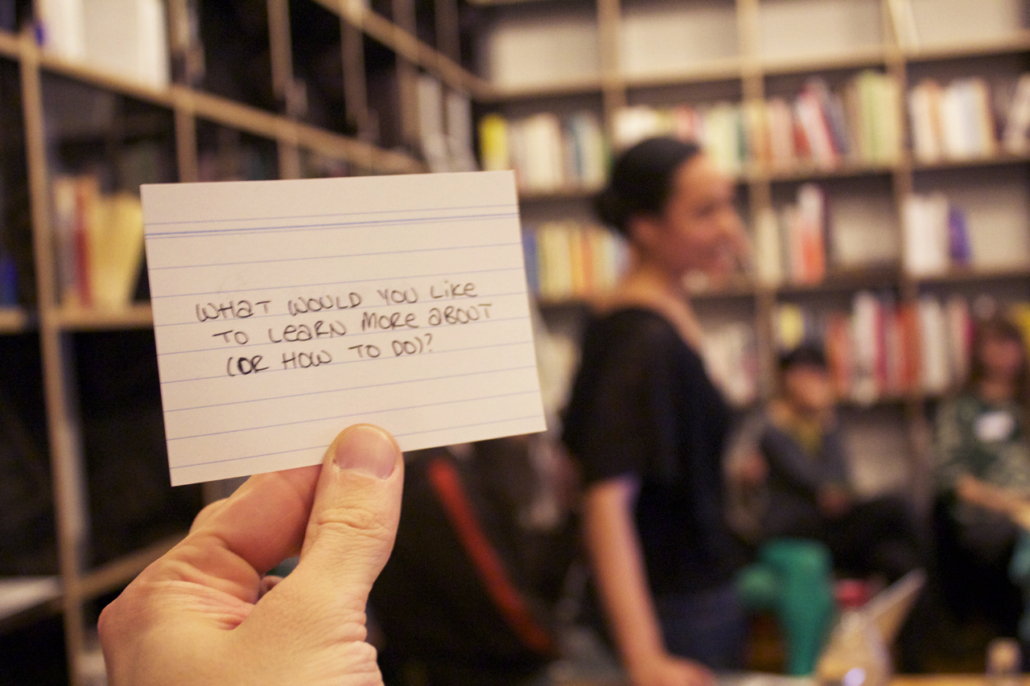 WHAT WOULD YOU LIKE
TO LEARN MORE ABOUT
(OR HOW TO DO)?